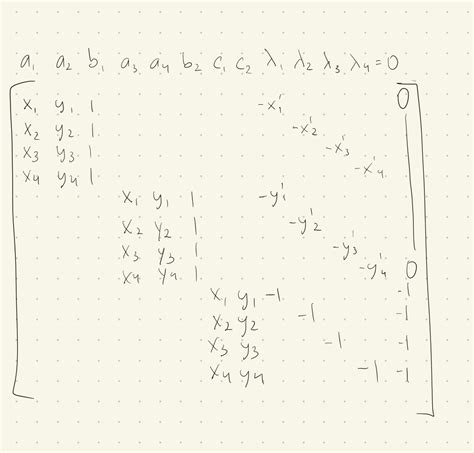 a₁ a₂ b₁ a₃ a₄ b₂ c₁ c₂ λ₁ λ₂ λ₃ λ₄ = 0
x₁ y₁ 1 -x₁' 0
x₂ y₂ 1 -x₂'
x₃ y₃ 1 -x₃'
x₄ y₄ 1 -x₄'
x₁ y₁ 1 -y₁'
x₂ y₂ 1 -y₂'
x₃ y₃ 1 -y₃'
x₄ y₄ 1 -y₄' 0
x₁ y₁ -1 -1
x₂ y₂ -1 -1
x₃ y₃ -1 -1
x₄ y₄ -1 -1